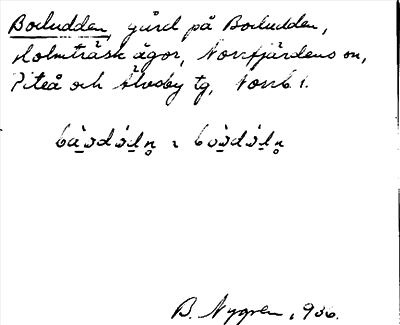 Bodudden, gård på Bodudden,
Holmträsk ägor, Norrfjärdens sn,
Piteå och Älvsby tg, Norrb. l.
B. Nygren, 1936.